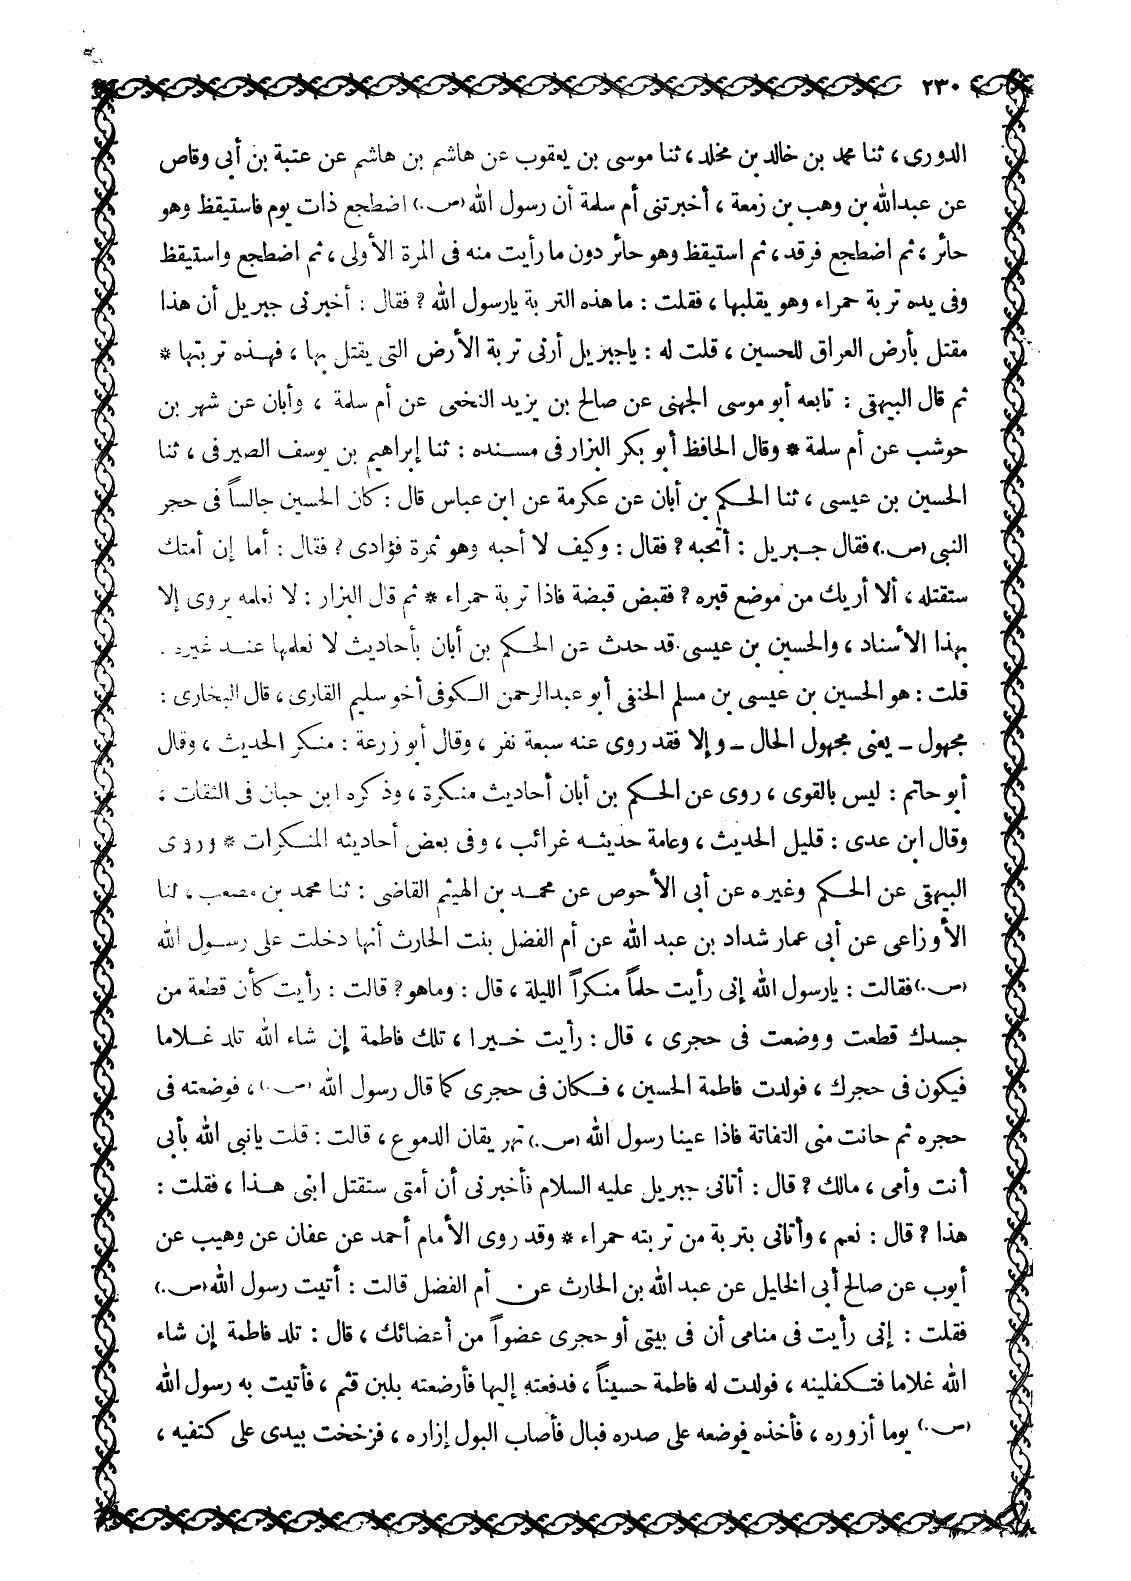 ٢٣٠
الدورى ، ثنا محمد بن خالد بن مخلد ، ثنا موسى بن يعقوب عن هاشم بن هاشم عن عتبة بن أبى وقاص
عن عبدالله بن وهب بن زمعة ، أخبرتنى أم سلمة أن رسول الله (ص.) اضطجع ذات يوم فاستيقظ وهو
حائر ، ثم اضطجع فرقد ، ثم استيقظ وهو حائر دون ما رأيت منه فى المرة الأولى ، ثم اضطجع واستيقظ
وفى يده تربة حمراء وهو يقلبها ، فقلت : ما هذه التربة يارسول الله ؟ فقال : أخبرنى جبريل أن هذا
مقتل بأرض العراق للحسين ، قلت له : ياجبريل أرنى تربة الأرض التى يقتل بها ، فهذه تربتها *
ثم قال البيهقى : تابعه أبو موسى الجهنى عن صالح بن يزيد النخعى عن أم سلمة ، وأبان عن شهر بن
حوشب عن أم سلمة * وقال الحافظ أبو بكر البزار فى مسنده : ثنا إبراهيم بن يوسف الصيرفى ، ثنا
الحسين بن عيسى ، ثنا الحكم بن أبان عن عكرمة عن ابن عباس قال : كان الحسين جالساً فى حجر
النبى (ص.) فقال جبريل : أتحبه ؟ فقال : وكيف لا أحبه وهو ثمرة فؤادى ؟ فقال : أما إن أمتك
ستقتله ، ألا أريك من موضع قبره ؟ فقبض قبضة فاذا تربة حمراء * ثم قال البزار : لا نعلمه يروى إلا
بهذا الأسناد ، والحسين بن عيسى قد حدث عن الحكم بن أبان بأحاديث لا نعلمها عند غيره .
قلت : هو الحسين بن عيسى بن مسلم الحنفى أبو عبدالرحمن الكوفى أخو سليم القارى ، قال البخارى :
مجهول ــ يعنى مجهول الحال ــ وإلا فقد روى عنه سبعة نفر ، وقال أبو زرعة : منكر الحديث ، وقال
أبو حاتم : ليس بالقوى ، روى عن الحكم بن أبان أحاديث منكرة ، وذكره ابن حبان فى الثقات ،
وقال ابن عدى : قليل الحديث ، وعامة حديثه غرائب ، وفى بعض أحاديثه المنكرات * وروى
البيهقى عن الحكم وغيره عن أبى الأحوص عن محمد بن الهيثم القاضى : ثنا محمد بن مصعب ، ثنا
الأوزاعى عن أبى عمار شداد بن عبد الله عن أم الفضل بنت الحارث أنها دخلت على رسول الله
(ص.) فقالت : يارسول الله إنى رأيت حلماً منكراً الليلة ، قال : وماهو ؟ قالت : رأيت كأن قطعة من
جسدك قطعت ووضعت فى حجرى ، قال : رأيت خيرا ، تلك فاطمة إن شاء الله تلد غلاما
فيكون فى حجرك ، فولدت فاطمة الحسين ، فكان فى حجرى كما قال رسول الله (ص.) ، فوضعته فى
حجره ثم حانت منى التفاتة فاذا عينا رسول الله (ص.) تهريقان الدموع ، قالت : قلت يانبى الله بأبى
أنت وأمى ، مالك ؟ قال : أتانى جبريل عليه السلام فأخبرنى أن أمتى ستقتل ابنى هذا ، فقلت :
هذا ؟ قال : نعم ، وأتانى بتربة من تربته حمراء * وقد روى الأمام أحمد عن عفان عن وهيب عن
أيوب عن صالح أبى الخليل عن عبد الله بن الحارث عن أم الفضل قالت : أتيت رسول الله (ص.)
فقلت : إنى رأيت فى منامى أن فى بيتى أو حجرى عضواً من أعضائك ، قال : تلد فاطمة إن شاء
الله غلاما فتكفلينه ، فولدت له فاطمة حسيناً ، فدفعته إليها فأرضعته بلبن قثم ، فأتيت به رسول الله
(ص.) يوما أزوره ، فأخذه فوضعه على صدره فبال فأصاب البول إزاره ، فزخخت بيدى على كتفيه ،